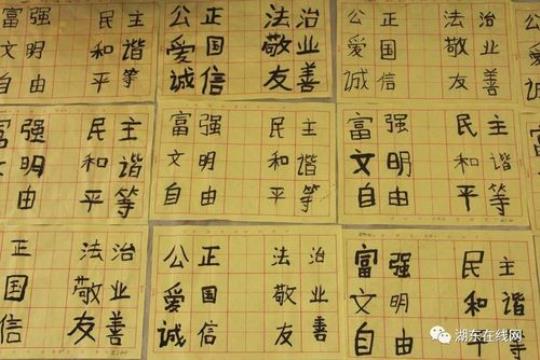 富强 民主
文明 和谐
自由 平等
公正 法治
爱国 敬业
诚信 友善
公正 法治
爱国 敬业
诚信 友善
富强 民主
文明 和谐
自由 平等
富强 民主
文明 和谐
自由 平等
富强 民主
文明 和谐
自由 平等
正 法治
国 敬业
信 友善
公正 法治
爱国 敬业
诚信 友善
富强 民主
文明 和谐
自由 平等
湖东在线网